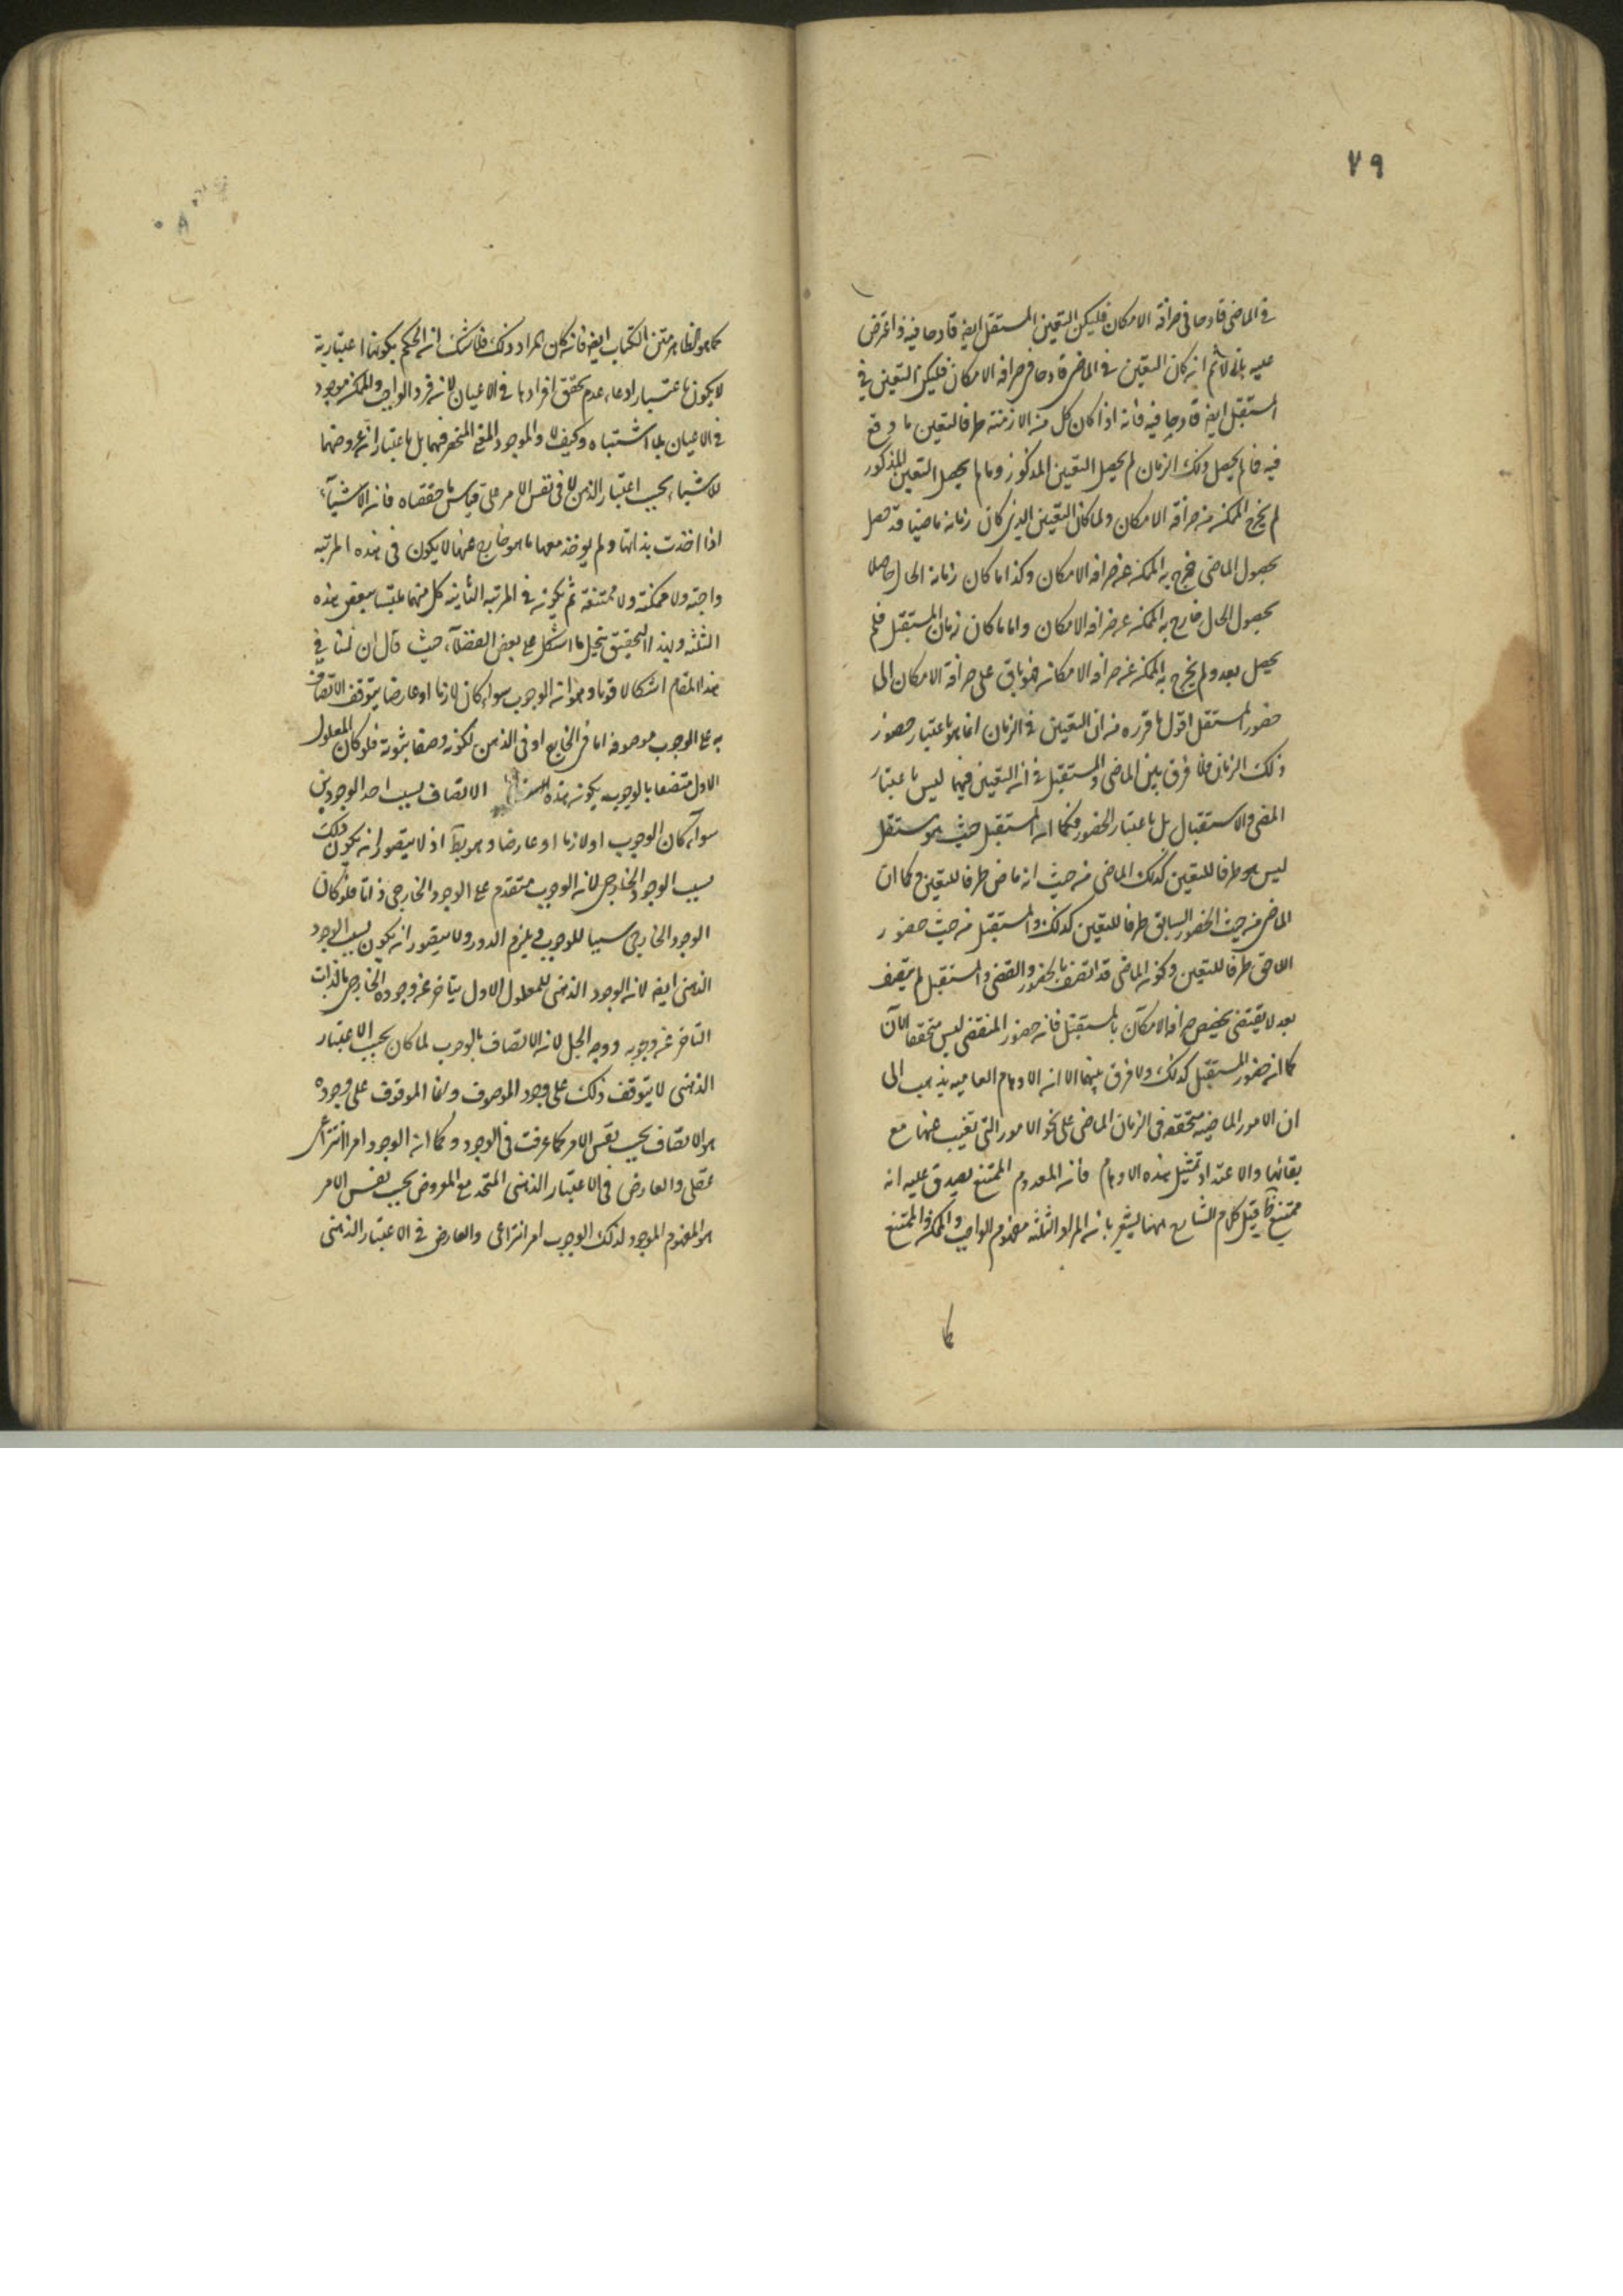 ٧٩
في الماضي قادحا في صرافة الامكان فليكن التعين المستقبل ايضا قادحا فيه واعترض
عليه بانا لا نم ان كان التعين في الماضي قادحا في صرافة الامكان فليكن التعين في
المستقبل ايضا قادحا فيه فانه اذا كان كل من الازمنة ظرفا لتعين ما وقع
فيه فما لم يحصل ذلك الزمان لم يحصل التعين المذكور وما لم يحصل التعين المذكور
لم يخرج الممكن من صرافة الامكان ولما كان التعين الذي كان زمانه ماضيا قد حصل
بحصول الماضي فخرج به الممكن عن صرافة الامكان وكذا ما كان زمانه الحال حاصلا
بحصول الحال خارج به الممكن عن صرافة الامكان واما ما كان زمان المستقبل فلم
يحصل بعد ولم يخرج به الممكن عن صرافة الامكان فهو باق على صرافة الامكان الى
حضور المستقبل اقول ما قرره من ان التعين في الزمان انما هو باعتبار حضور
ذلك الزمان فلا فرق بين الماضي والمستقبل في ان التعين فيهما ليس باعتبار
المضي والاستقبال بل باعتبار الحضور فكما ان المستقبل حيث هو مستقبل
ليس هو ظرفا للتعين كذلك الماضي من حيث انه ماض ظرفا للتعين وكما ان
الماضي من حيث الحضور السابق ظرفا للتعين كذلك والمستقبل من حيث حضور
اللاحق ظرفا للتعين وكون الماضي قد اتصف بالحضور والتقضي والمستقبل لم يتصف
بعد لا يقتضي تخصيص صرافة الامكان بالمستقبل فان حضور المنقضي ليس متحققا الآن
كما ان حضور المستقبل كذلك ولا فرق بينهما الا ان الاوهام العامية يذهب الى
ان الامور الماضيه متحققه في الزمان الماضي على نحو الامور التي تغيب عنها مع
بقائها والا عتداد بمثل هذه الاوهام فان المعدوم الممتنع يصدق عليه انه
ممتنع قيل كلام الشارح ههنا يشعر بان المراد الثلثه مفهوم الواجب والممكن والممتنع
كما
كما هو الظاهر متن الكتاب ايضا فان كان المراد ذلك فلا شك ان الحكم بكونها اعتبارية
لا يكون باعتبار ادعاء عدم تحقق افرادها في الاعيان لان فرد الواجب والممكن موجود
في الاعيان بلا اشتباه وكيف لا والموجود المنحصر فيهما بل باعتبار ان عروضهما
للاشياء بحسب اعتبار الذهن لا في نفس الامر على قياس ما حققناه فان الاشياء
اذا اخذت بذاتها ولم يوخذ معها ما هو خارج عنها لا يكون في هذه المرتبه
واجبه ولا ممكنه ولا ممتنعة ثم يكون في المرتبه الثانيه كل منهما متلبسا ببعض هذه
الثلثه وبهذا التحقيق ينحل ما اشكل على بعض الفضلاء حيث قال ان لنا في
هذا المقام اشكالا قويا وهو ان الوجوب سواء كان لازما او عارضا يتوقف الاتصاف
به على الوجوب موصوفه اما في الخارج او في الذهن لكونه وصفا ثبوتيه فلو كان المعلول
الاول متصفا بالوجوب يكون هذه الاتصاف بسبب احد الوجودين
سواء كان الوجوب اولازما او عارضا وهو بط اذ لا يتصور ان يكون ذلك
بسبب الوجود الخارجي لان الوجوب متقدم على الوجود الخارجي ذاتا فلو كان
الوجود الخارجي سببا للوجوب يلزم الدور ولا يتصور ان يكون بسبب الوجود
الذهني ايضا لان الوجود الذهني للمعلول الاول يتاخر عن وجوده الخارجي بالذات
التاخر عن وجوبه ووجه الحل لان الاتصاف بالوجوب لما كان بحسب الاعتبار
الذهني لا يتوقف ذلك على وجود الموصوف وانما الموقوف على وجوده
هو الاتصاف بحسب نفس الامر كما عرفت في الوجود وكما ان الوجود امر انتزاعي
عقلي والعارض في الاعتبار الذهني المتحد مع المعروض بحسب نفس الامر
هو المفهوم الموجود لذلك الوجوب امر انتزاعي والعارض في الاعتبار الذهني